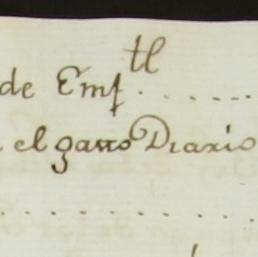 de Emp.tl
el gasto Diario